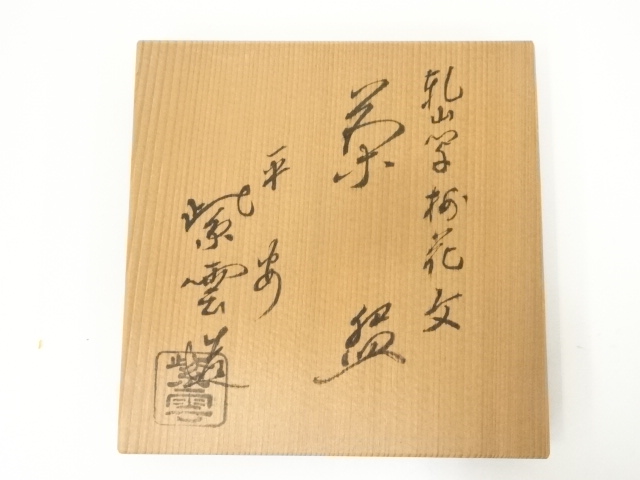 乾山写梅花文
茶盌
平安
紫雲造
紫雲